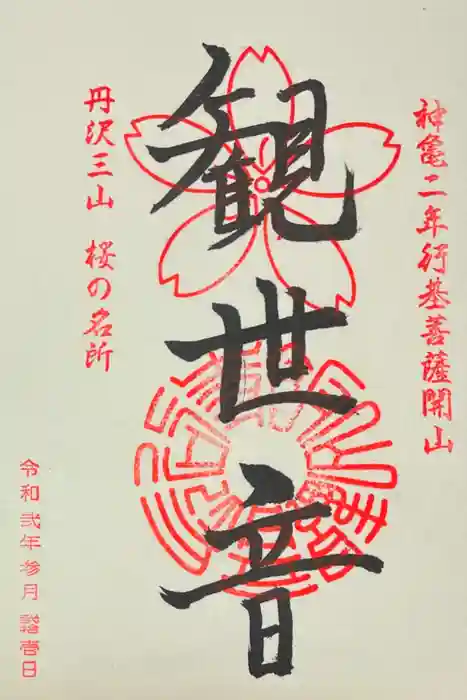 神亀二年行基菩薩開山
観世音
丹沢三山 桜の名所
令和弐年参月拾壱日